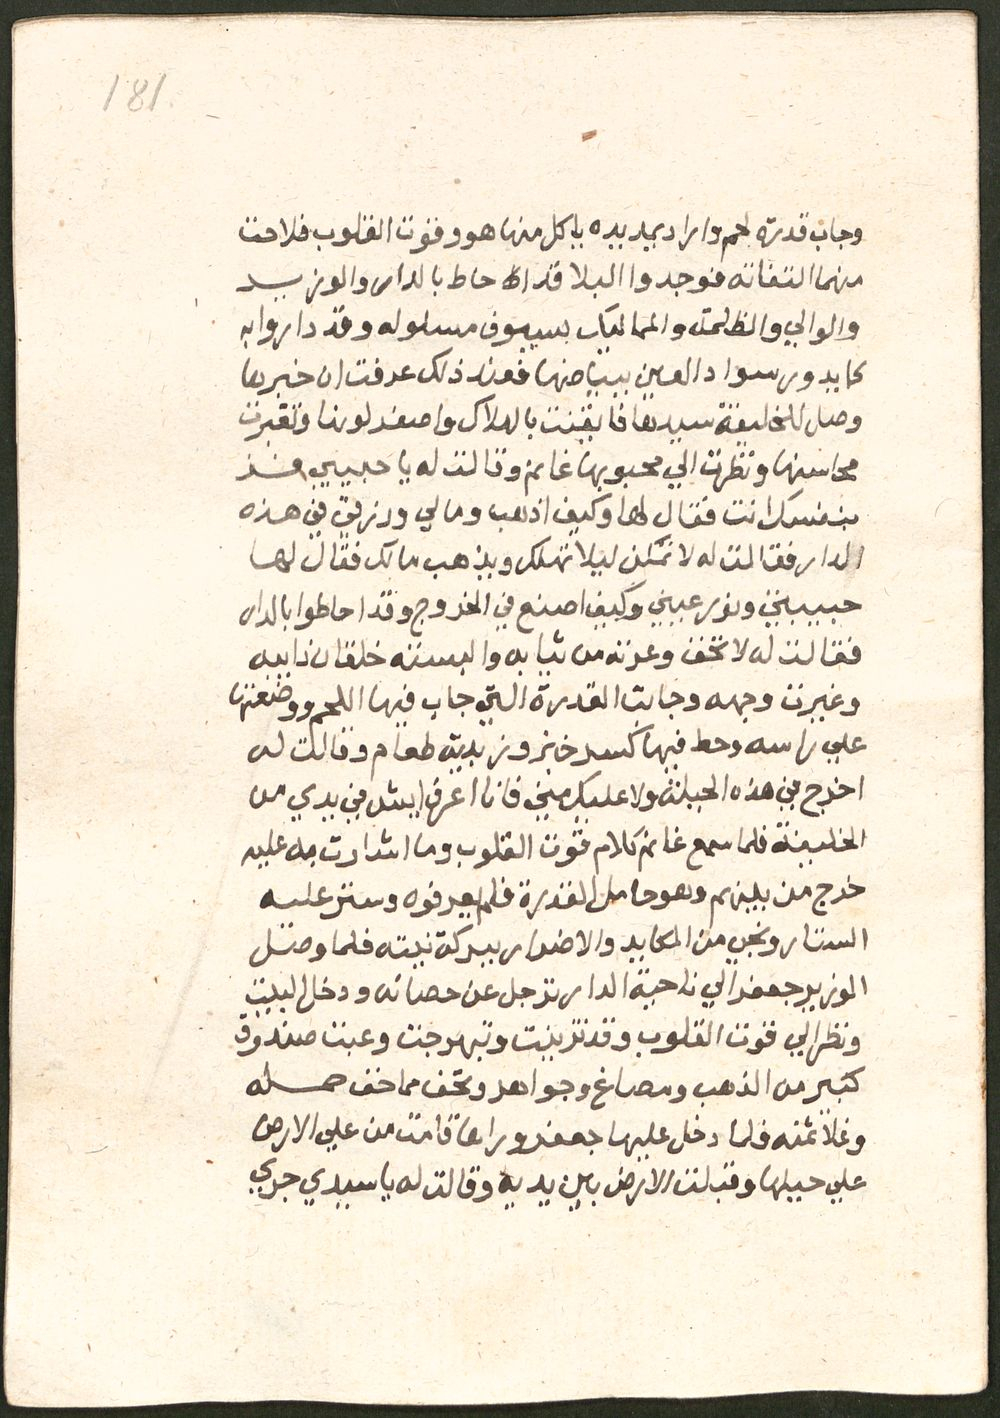 181
وجاب قدرة لحم واراد يمد يده ياكل منها هو وقوت القلوب فلاحت
منهما التفاته فوجدوا البلا قد احاط بالدار والوزيــد
والوالي والظلمة والمماليك بسيوف مسلوله وقد داروا به
كما يدور سواد العين ببياضها فعند ذلك عرفت ان خبرها
وصل للخليفة سيدها فايقنت بالهلاك واصفر لونها وتغيرت
محاسنها ونظرت الي محبوبها غانم وقالت له يا حبيبي فــز
بنفسك انت فقال لها وكيف اذهب ومالي ورزقي في هذه
الدار فقالت له لا تمكن ليلا تهلك ويذهب مالك فقال لهـا
حبيبتي ونور عيني وكيف اصنع في الخروج وقد احاطوا بالدار
فقالت له لا تخف وعرته من ثيابه والبسته خلقان ذايبه
وغيرت وجهه وجابت القدرة التي جاب فيها اللحم ووضعتها
علي راسه وحط فيها كسر خبز وزبدية طعام وقالت له
اخرج في هذه الحيلة ولا عليك مني فانا اعرف ايش في يدي من
الخليفة فلما سمع غانم كلام قوت القلوب وما اشارت به عليه
خرج من بينهم وهو حامل القدرة فلم يعرفوه وستر عليـه
الستار ونجي من المكايد والاضرار ببركة نيته فلما وصــل
الوزير جعفر الي ناحية الدار ترجل عن حصانه ودخل البيت
ونظر الي قوت القلوب وقد تزينت وتبهرجت وعبت صندوق
كبير من الذهب ومصاغ وجواهر وتحف مما خف حمــله
وغلا ثمنه فلما دخل عليها جعفر وراها قامت من علي الارض
علي حيلها وقبلت الارض بين يديه وقالت له يا سيدي جري